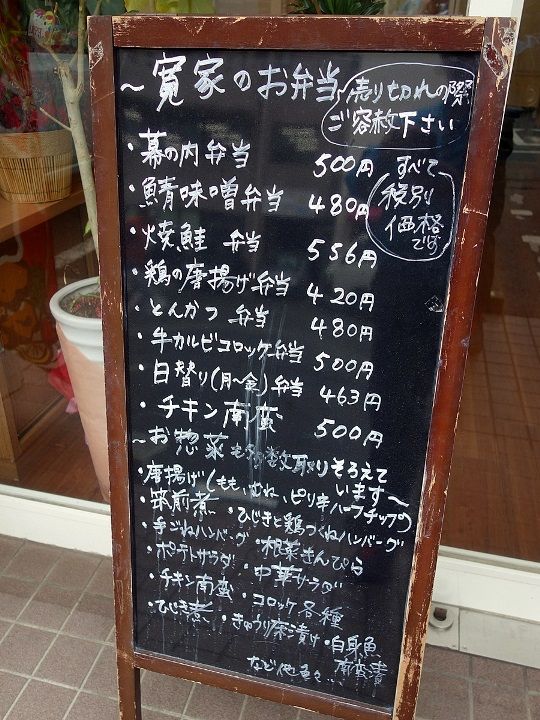 ～寛家のお弁当～
売り切れの際
ご容赦下さい
・幕の内弁当 500円
・鯖味噌弁当 480円
・焼鮭 弁当 556円
・鶏の唐揚げ弁当 420円
・とんかつ 弁当 480円
・牛カルビコロッケ弁当 500円
・日替り(月～金)弁当 463円
・チキン南蛮 500円
すべて
税別
価格
です
～お惣菜も多数取りそろえて
います～
・唐揚げ(もも、むね、ピリ辛ハーフチップ)
・筑前煮 ・ひじきと鶏つくねハンバーグ
・手ごねハンバーグ ・根菜きんぴら
・ポテトサラダ ・中華サラダ
・チキン南蛮 ・コロッケ各種
・ひじき煮 ・きゅうり漬け ・白身魚
南蛮漬
など他色々...